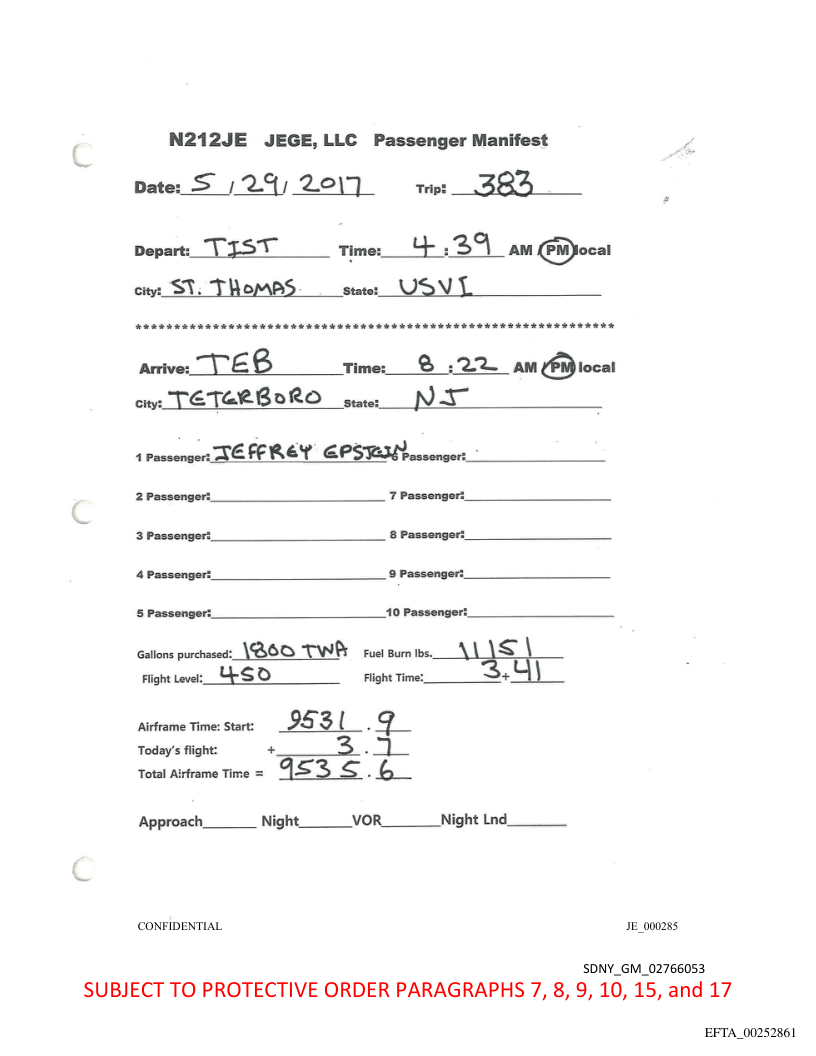 N212JE JEGE, LLC Passenger Manifest
Date: 5 / 29 / 2017 Trip: 383
Depart: TIST Time: 4 : 39 AM / PM local
City: ST. THOMAS State: USVI
***************************************************************
Arrive: TEB Time: 8 : 22 AM / PM local
City: TETERBORO State: NJ
1 Passenger: JEFFREY EPSTEIN 6 Passenger:
2 Passenger: 7 Passenger:
3 Passenger: 8 Passenger:
4 Passenger: 9 Passenger:
5 Passenger: 10 Passenger:
Gallons purchased: 1800 TWA Fuel Burn lbs. 11151
Flight Level: 450 Flight Time: 3 + 41
Airframe Time: Start: 9531 . 9
Today's flight: + 3 . 7
Total Airframe Time = 9535 . 6
Approach Night VOR Night Lnd
CONFIDENTIAL JE_000285
SDNY_GM_02766053
SUBJECT TO PROTECTIVE ORDER PARAGRAPHS 7, 8, 9, 10, 15, and 17
EFTA_00252861